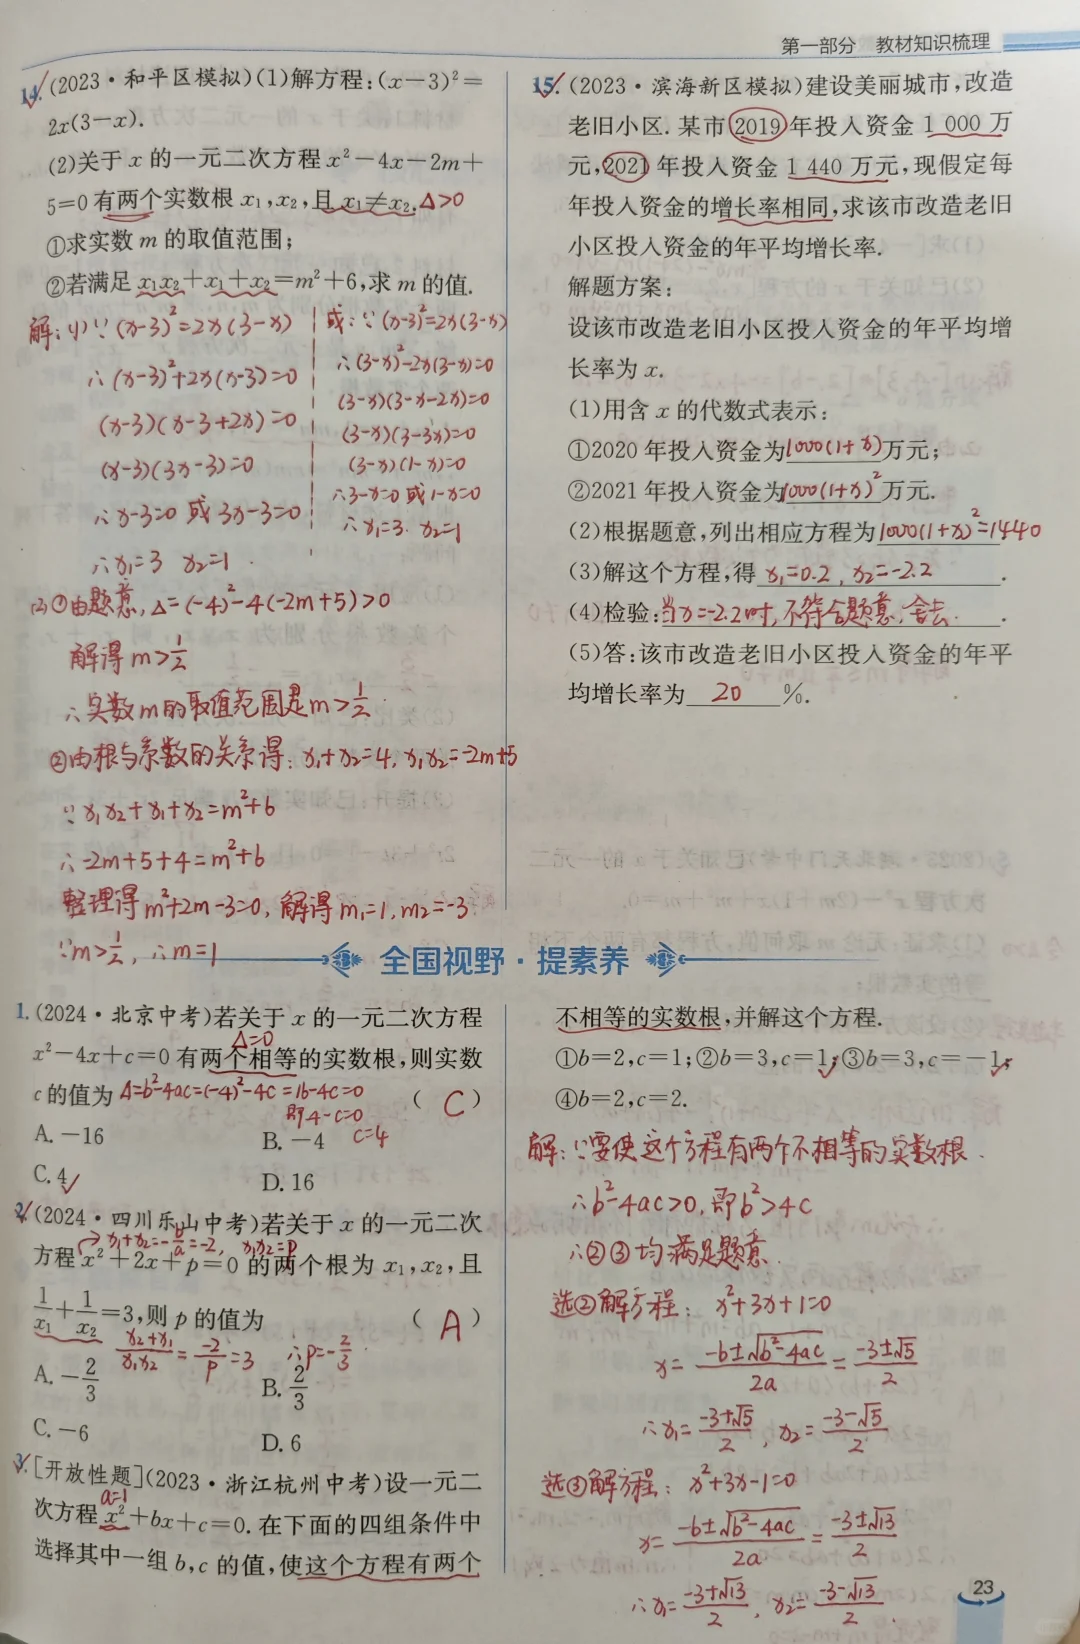 第一部分 教材知识梳理
14.(2023·和平区模拟)(1)解方程:(x-3)²=
2x(3-x).
(2)关于 x 的一元二次方程 x²-4x-2m+
5=0 有两个实数根 x₁,x₂,且 x₁≠x₂. Δ>0
①求实数 m 的取值范围;
②若满足 x₁x₂+x₁+x₂=m²+6,求 m 的值.
解:(1)∵(x-3)²=2x(3-x)
∴(x-3)²+2x(x-3)=0
(x-3)(x-3+2x)=0
(x-3)(3x-3)=0
∴x-3=0 或 3x-3=0
∴x₁=3 x₂=1
或:∵(x-3)²=2x(3-x)
∴(3-x)²-2x(3-x)=0
(3-x)(3-x-2x)=0
(3-x)(3-3x)=0
(3-x)(1-x)=0
∴3-x=0 或 1-x=0
∴x₁=3. x₂=1
(2)①由题意,Δ=(-4)²-4(-2m+5)>0
解得 m>1/2
∴实数m的取值范围是 m>1/2.
②由根与系数的关系得:x₁+x₂=4, x₁x₂=-2m+5
∵x₁x₂+x₁+x₂=m²+6
∴-2m+5+4=m²+6
整理得 m²+2m-3=0, 解得 m₁=1, m₂=-3
∵m>1/2, ∴m=1
15.(2023·滨海新区模拟)建设美丽城市,改造
老旧小区.某市 2019 年投入资金 1 000 万
元,2021 年投入资金 1 440 万元,现假定每
年投入资金的增长率相同,求该市改造老旧
小区投入资金的年平均增长率.
解题方案:
设该市改造老旧小区投入资金的年平均增
长率为 x.
(1)用含 x 的代数式表示:
①2020 年投入资金为1000(1+x)万元;
②2021 年投入资金为1000(1+x)²万元.
(2)根据题意,列出相应方程为1000(1+x)²=1440
(3)解这个方程,得 x₁=0.2, x₂=-2.2.
(4)检验:当x=-2.2时,不符合题意,舍去.
(5)答:该市改造老旧小区投入资金的年平
均增长率为 20 %.
全国视野·提素养
1.(2024·北京中考)若关于 x 的一元二次方程
Δ=0
x²-4x+c=0 有两个相等的实数根,则实数
c 的值为 Δ=b²-4ac=(-4)²-4c=16-4c=0 ( C )
即4-c=0
A.-16 B.-4 c=4
C.4 D.16
2.(2024·四川乐山中考)若关于 x 的一元二次
x₁+x₂=-b/a=-2, x₁x₂=p
方程 x²+2x+p=0 的两个根为 x₁,x₂,且
1/x₁+1/x₂=3,则 p 的值为 ( A )
(x₂+x₁)/(x₁x₂)=-2/p=3 ∴p=-2/3.
A.-2/3 B.2/3
C.-6 D.6
3.[开放性题](2023·浙江杭州中考)设一元二
a=1
次方程 x²+bx+c=0.在下面的四组条件中
选择其中一组 b,c 的值,使这个方程有两个
不相等的实数根,并解这个方程.
①b=2,c=1;②b=3,c=1;③b=3,c=-1;
④b=2,c=2.
解:∵要使这个方程有两个不相等的实数根.
∴b²-4ac>0,即b²>4c
∴②③均满足题意.
选②解方程: x²+3x+1=0
x=(-b±√(b²-4ac))/2a=(-3±√5)/2
∴x₁=(-3+√5)/2, x₂=(-3-√5)/2
选③解方程: x²+3x-1=0
x=(-b±√(b²-4ac))/2a=(-3±√13)/2
∴x₁=(-3+√13)/2, x₂=(-3-√13)/2.
23